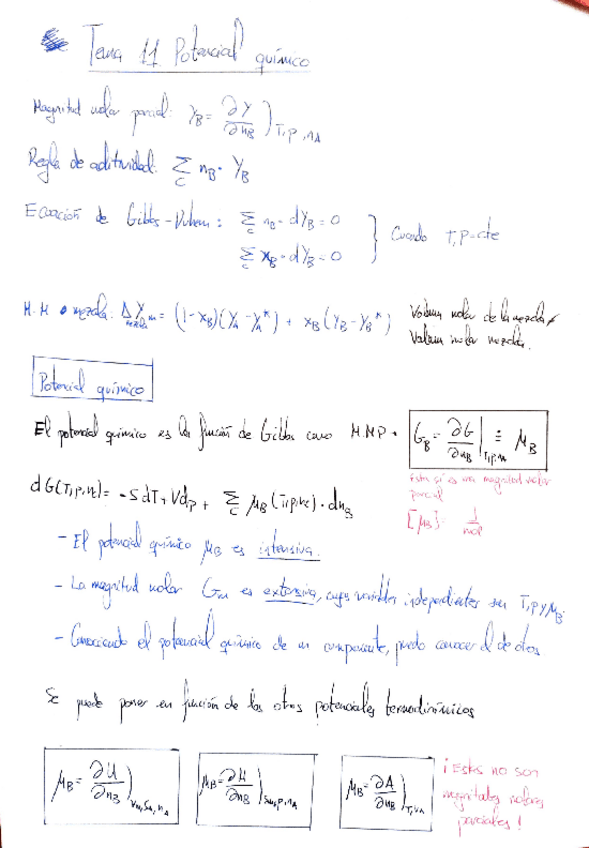 Tema 11 Potencial químico
Magnitud molar parcial: Y_B = ∂Y/∂n_B )_T,P,n_A
Regla de aditividad: Σ_C n_B · Y_B
Ecuación de Gibbs-Duhem: Σ_C n_B · dY_B = 0
Σ_C x_B · dY_B = 0 } Cuando T,P=cte
M.M mezcla. Δ_mezcla Y_m = (1-x_B)(Y_A - Y_A*) + x_B (Y_B - Y_B*) Volum molar de la mezcla ≠
Volum molar mezcla.
Potencial químico
El potencial químico es la función de Gibbs como M.MP. G_B = ∂G/∂n_B |_T,P,n_A ≡ μ_B
Esta sí es una magnitud molar
parcial
dG(T,P,n_C) = -SdT + VdP + Σ_C μ_B (T,P,n_C) · dn_B
[μ_B]: J/mol
- El potencial químico μ_B es intensiva.
- La magnitud molar G_m es extensiva, cuyas variables independientes son T,P y M_B.
- Conociendo el potencial químico de un componente, puedo conocer el de otros
Se puede poner en función de los otros potenciales termodinámicos
μ_B = ∂U/∂n_B )_Vm,Sm,n_A μ_B = ∂H/∂n_B )_Sm,P,n_A μ_B = ∂A/∂n_B )_T,V,n_A
¡Estas no son
magnitudes molares
parciales!